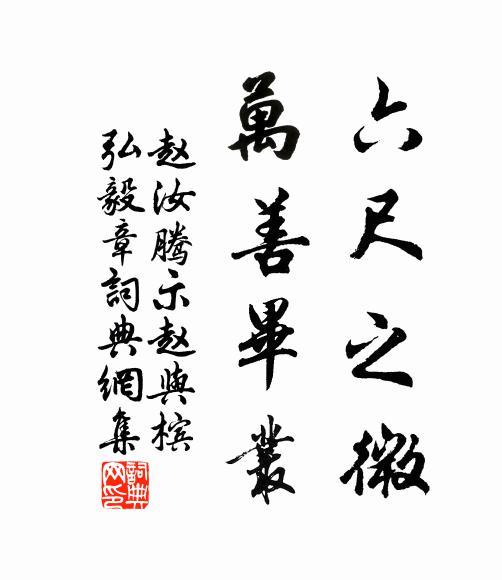 六尺之微
萬善畢叢
赵汝腾示赵與槟
弘毅章詞典網集
詞典网印